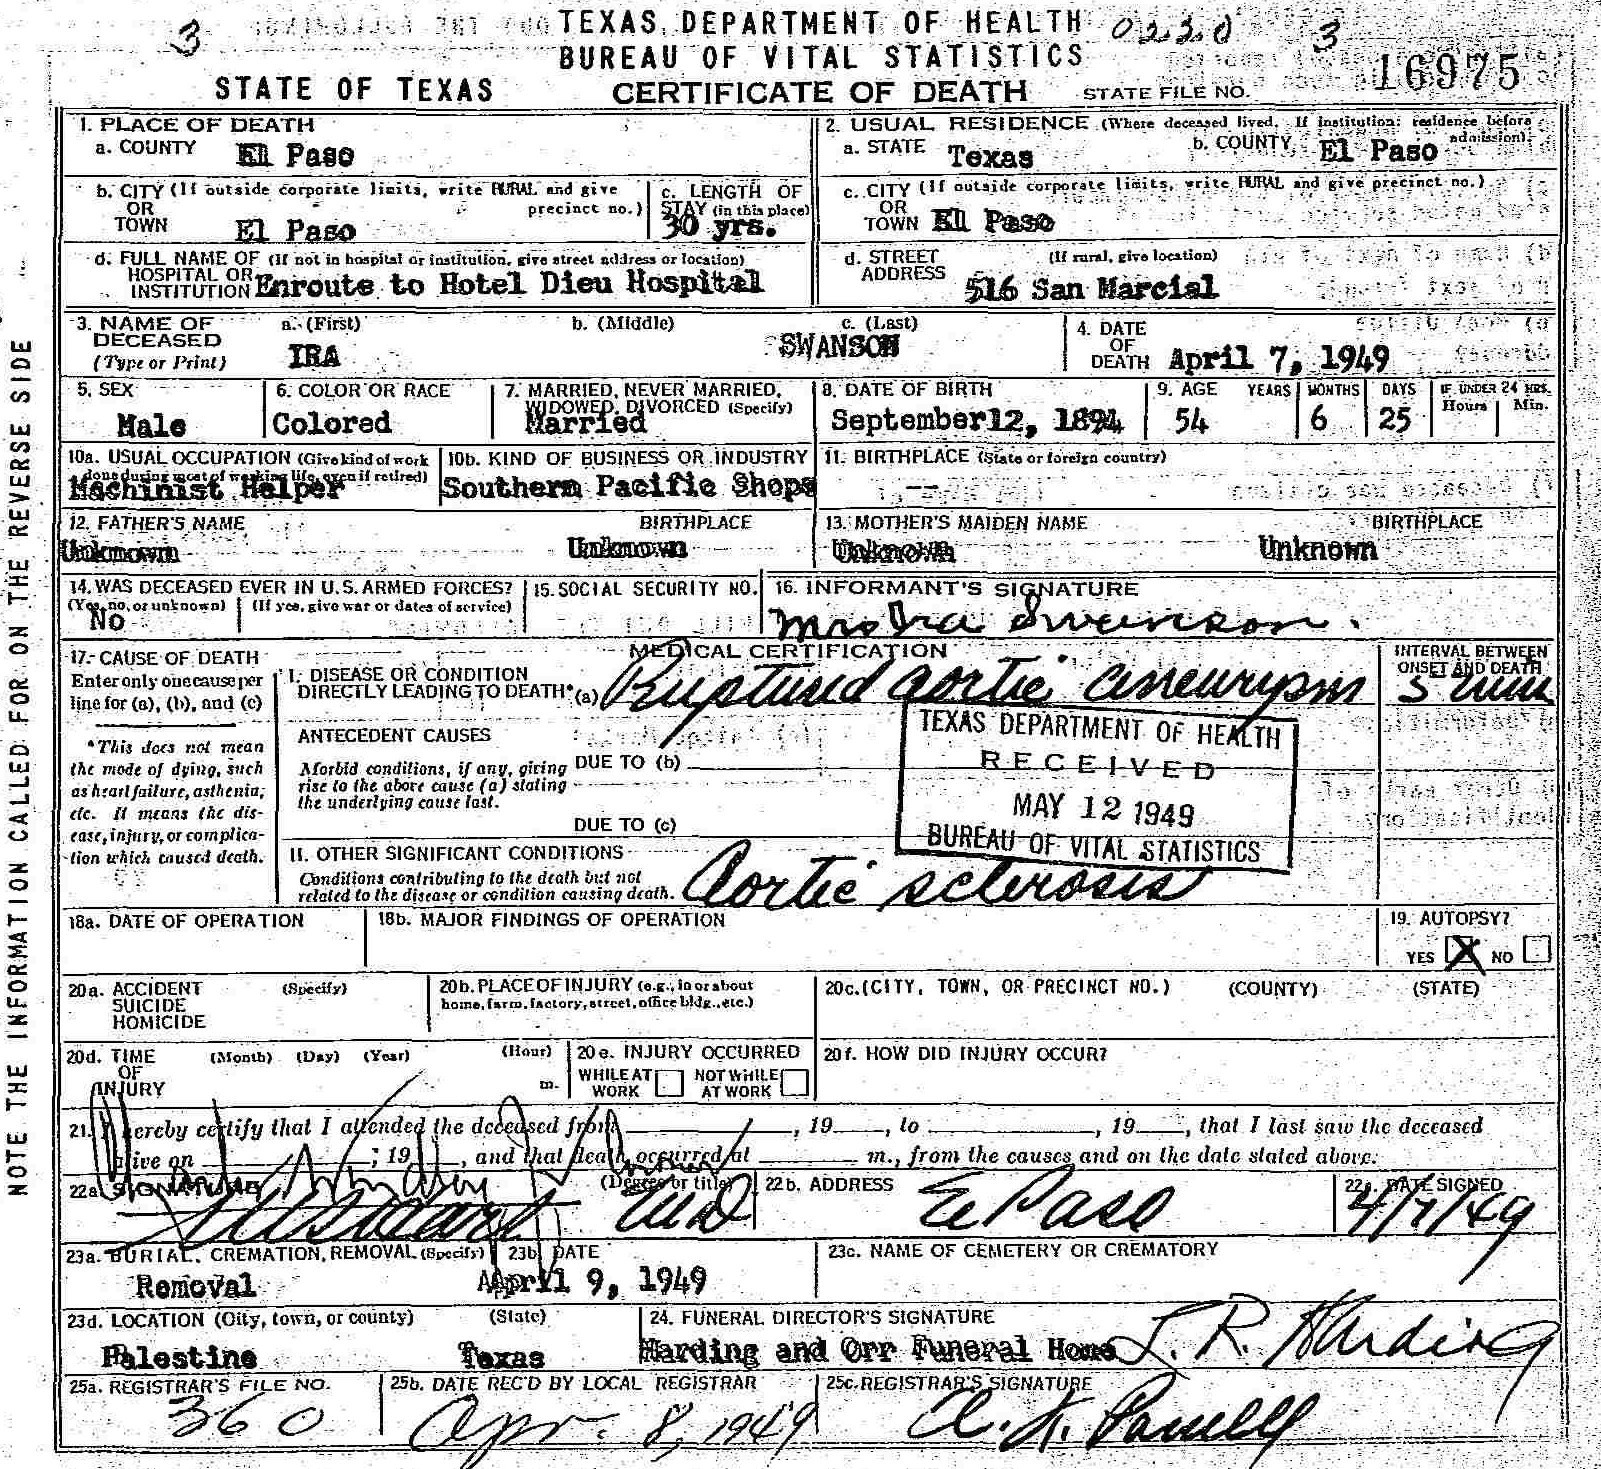 TEXAS DEPARTMENT OF HEALTH
BUREAU OF VITAL STATISTICS
3 0230 3
STATE OF TEXAS CERTIFICATE OF DEATH STATE FILE NO. 16975
NOTE THE INFORMATION CALLED FOR ON THE REVERSE SIDE
1. PLACE OF DEATH
a. COUNTY El Paso
2. USUAL RESIDENCE (Where deceased lived. If institution: residence before admission).
a. STATE Texas b. COUNTY El Paso
b. CITY (If outside corporate limits, write RURAL and give precinct no.)
OR
TOWN El Paso
c. LENGTH OF
STAY (in this place)
30 yrs.
c. CITY (If outside corporate limits, write RURAL and give precinct no.)
OR
TOWN El Paso
d. FULL NAME OF (If not in hospital or institution, give street address or location)
HOSPITAL OR
INSTITUTION Enroute to Hotel Dieu Hospital
d. STREET (If rural, give location)
ADDRESS 516 San Marcial
3. NAME OF DECEASED (Type or Print)
a. (First) b. (Middle) c. (Last)
IRA SWANSON
4. DATE OF DEATH April 7, 1949
5. SEX
Male
6. COLOR OR RACE
Colored
7. MARRIED, NEVER MARRIED,
WIDOWED, DIVORCED (Specify)
Married
8. DATE OF BIRTH
September12, 1894
9. AGE YEARS MONTHS DAYS IF UNDER 24 HRS. Hours Min.
54 6 25
10a. USUAL OCCUPATION (Give kind of work
done during most of working life, even if retired)
Machinist Helper
10b. KIND OF BUSINESS OR INDUSTRY
Southern Pacific Shops
11. BIRTHPLACE (State or foreign country)
--
12. FATHER'S NAME BIRTHPLACE
Unknown Unknown
13. MOTHER'S MAIDEN NAME BIRTHPLACE
Unknown Unknown
14. WAS DECEASED EVER IN U.S. ARMED FORCES?
(Yes, no, or unknown) (If yes, give war or dates of service)
No
15. SOCIAL SECURITY NO.
16. INFORMANT'S SIGNATURE
Mrs Ira Swanson.
17. CAUSE OF DEATH
Enter only one cause per
line for (a), (b), and (c)
*This does not mean
the mode of dying, such
as heart failure, asthenia,
etc. It means the dis-
ease, injury, or complica-
tion which caused death.
MEDICAL CERTIFICATION
I. DISEASE OR CONDITION
DIRECTLY LEADING TO DEATH* (a) Ruptured aortic aneurysm
INTERVAL BETWEEN
ONSET AND DEATH
5 min
ANTECEDENT CAUSES
Morbid conditions, if any, giving
rise to the above cause (a) stating
the underlying cause last.
DUE TO (b)
DUE TO (c)
TEXAS DEPARTMENT OF HEALTH
RECEIVED
MAY 12 1949
BUREAU OF VITAL STATISTICS
II. OTHER SIGNIFICANT CONDITIONS
Conditions contributing to the death but not
related to the disease or condition causing death. Aortic sclerosis
18a. DATE OF OPERATION
18b. MAJOR FINDINGS OF OPERATION
19. AUTOPSY?
YES X NO
20a. ACCIDENT (Specify)
SUICIDE
HOMICIDE
20b. PLACE OF INJURY (e.g., in or about
home, farm, factory, street, office bldg., etc.)
20c. (CITY, TOWN, OR PRECINCT NO.) (COUNTY) (STATE)
20d. TIME (Month) (Day) (Year) (Hour)
OF
INJURY m.
20e. INJURY OCCURRED
WHILE AT WORK NOT WHILE AT WORK
20f. HOW DID INJURY OCCUR?
21. I hereby certify that I attended the deceased from , 19 , to , 19 , that I last saw the deceased
alive on , 19 , and that death occurred at m., from the causes and on the date stated above.
22a. SIGNATURE (Degree or title)
Coroner
MD
22b. ADDRESS
El Paso
22c. DATE SIGNED
4/7/49
23a. BURIAL, CREMATION, REMOVAL (Specify)
Removal
23b. DATE
April 9, 1949
23c. NAME OF CEMETERY OR CREMATORY
23d. LOCATION (City, town, or county) (State)
Palestine Texas
24. FUNERAL DIRECTOR'S SIGNATURE
Harding and Orr Funeral Home J. R. Harding
25a. REGISTRAR'S FILE NO.
360
25b. DATE REC'D BY LOCAL REGISTRAR
Apr. 8, 1949
25c. REGISTRAR'S SIGNATURE